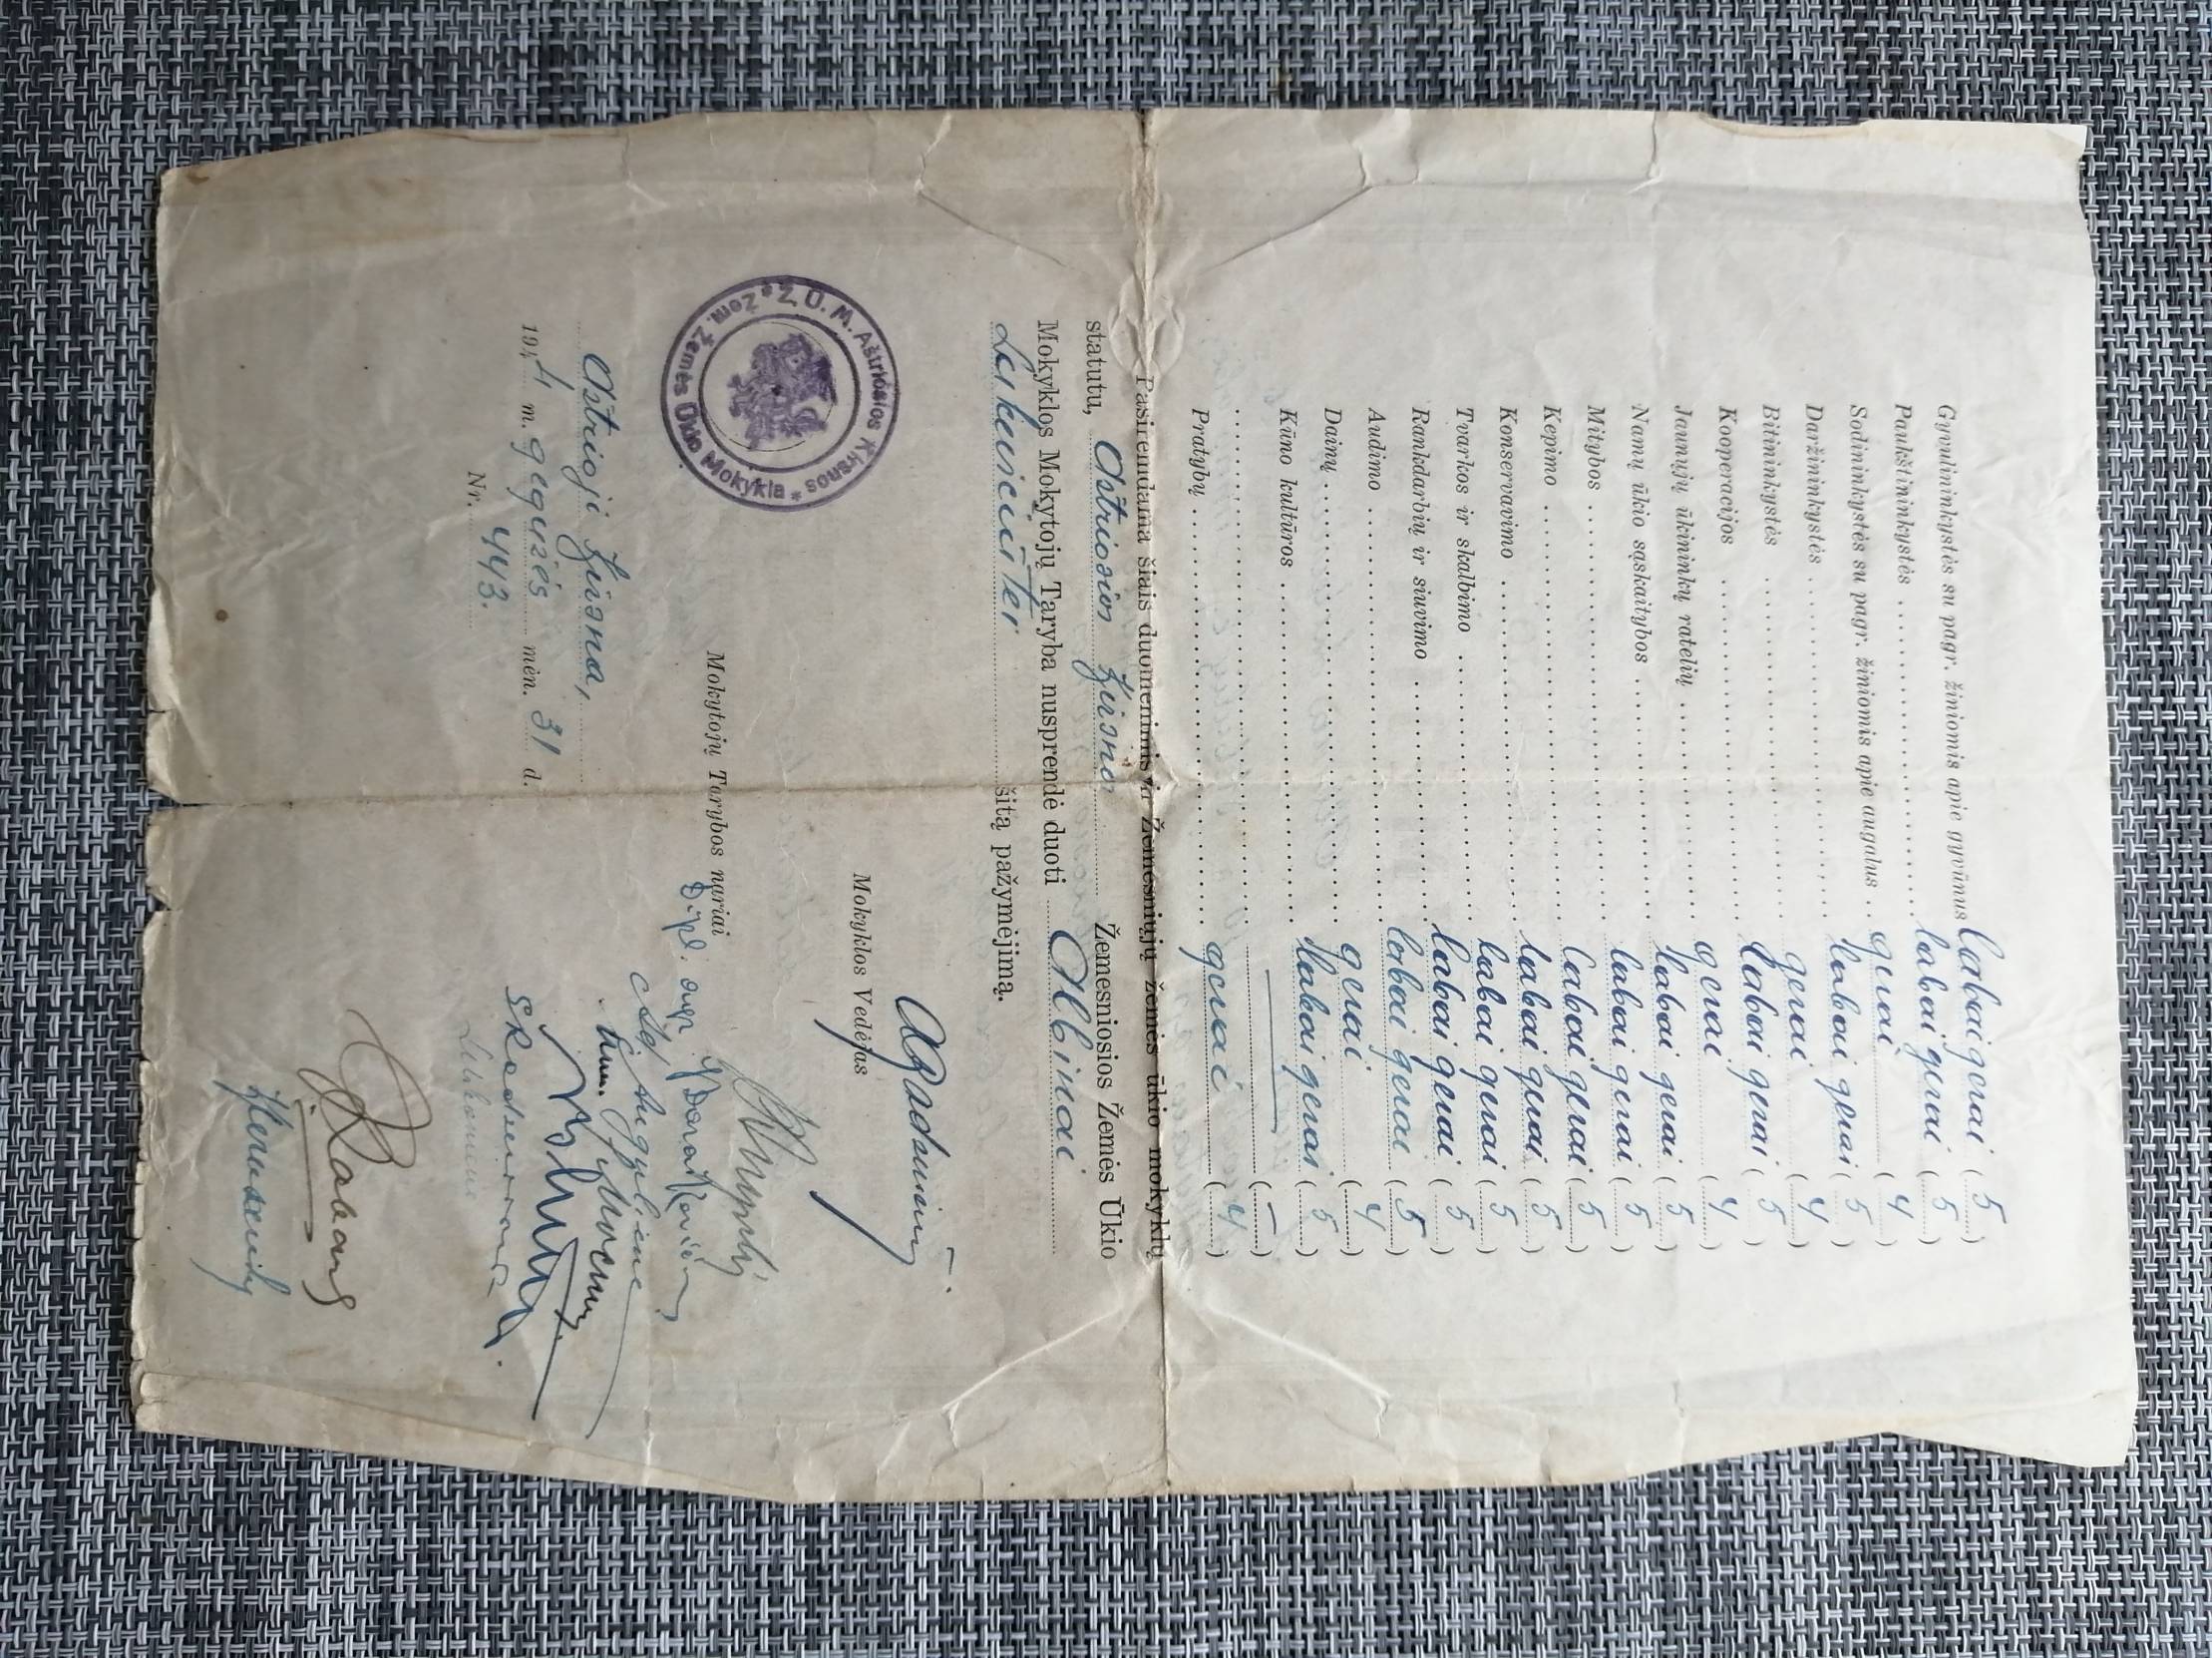 Gyvulininkystės su pagr. žiniomis apie gyvūnus labai gerai (5)
Paukštininkystės labai gerai (5)
Sodininkystės su pagr. žiniomis apie augalus gerai (4)
Daržininkystės labai gerai (5)
Bitininkystės gerai (4)
Kooperacijos labai gerai (5)
Jaunųjų ūkininkų ratelių gerai (4)
Namų ūkio sąskaitybos labai gerai (5)
Mitybos labai gerai (5)
Kepimo labai gerai (5)
Konservavimo labai gerai (5)
Tvarkos ir skalbimo labai gerai (5)
Rankdarbių ir siuvimo labai gerai (5)
Audimo labai gerai (5)
Dainų gerai (4)
Kūno kultūros labai gerai (5)
(—)
Pratybų gerai (4)
Pasiremdama šiais duomenimis ir Žemesniųjų žemės ūkio mokyklų
statutu, Aštriosios Kirsnos Žemesniosios Žemės Ūkio
Mokyklos Mokytojų Taryba nusprendė duoti Albinai
šitą pažymėjimą.
Mokyklos Vedėjas
Ž. Ū. M. Aštriosios Kirsnos * Žem. Žemės Ūkio Mokykla *
Mokytojų Tarybos nariai
Dipl. agr.
Aštrioji Kirsna,
194 m. gegužės mėn. 31 d.
Nr. 443.